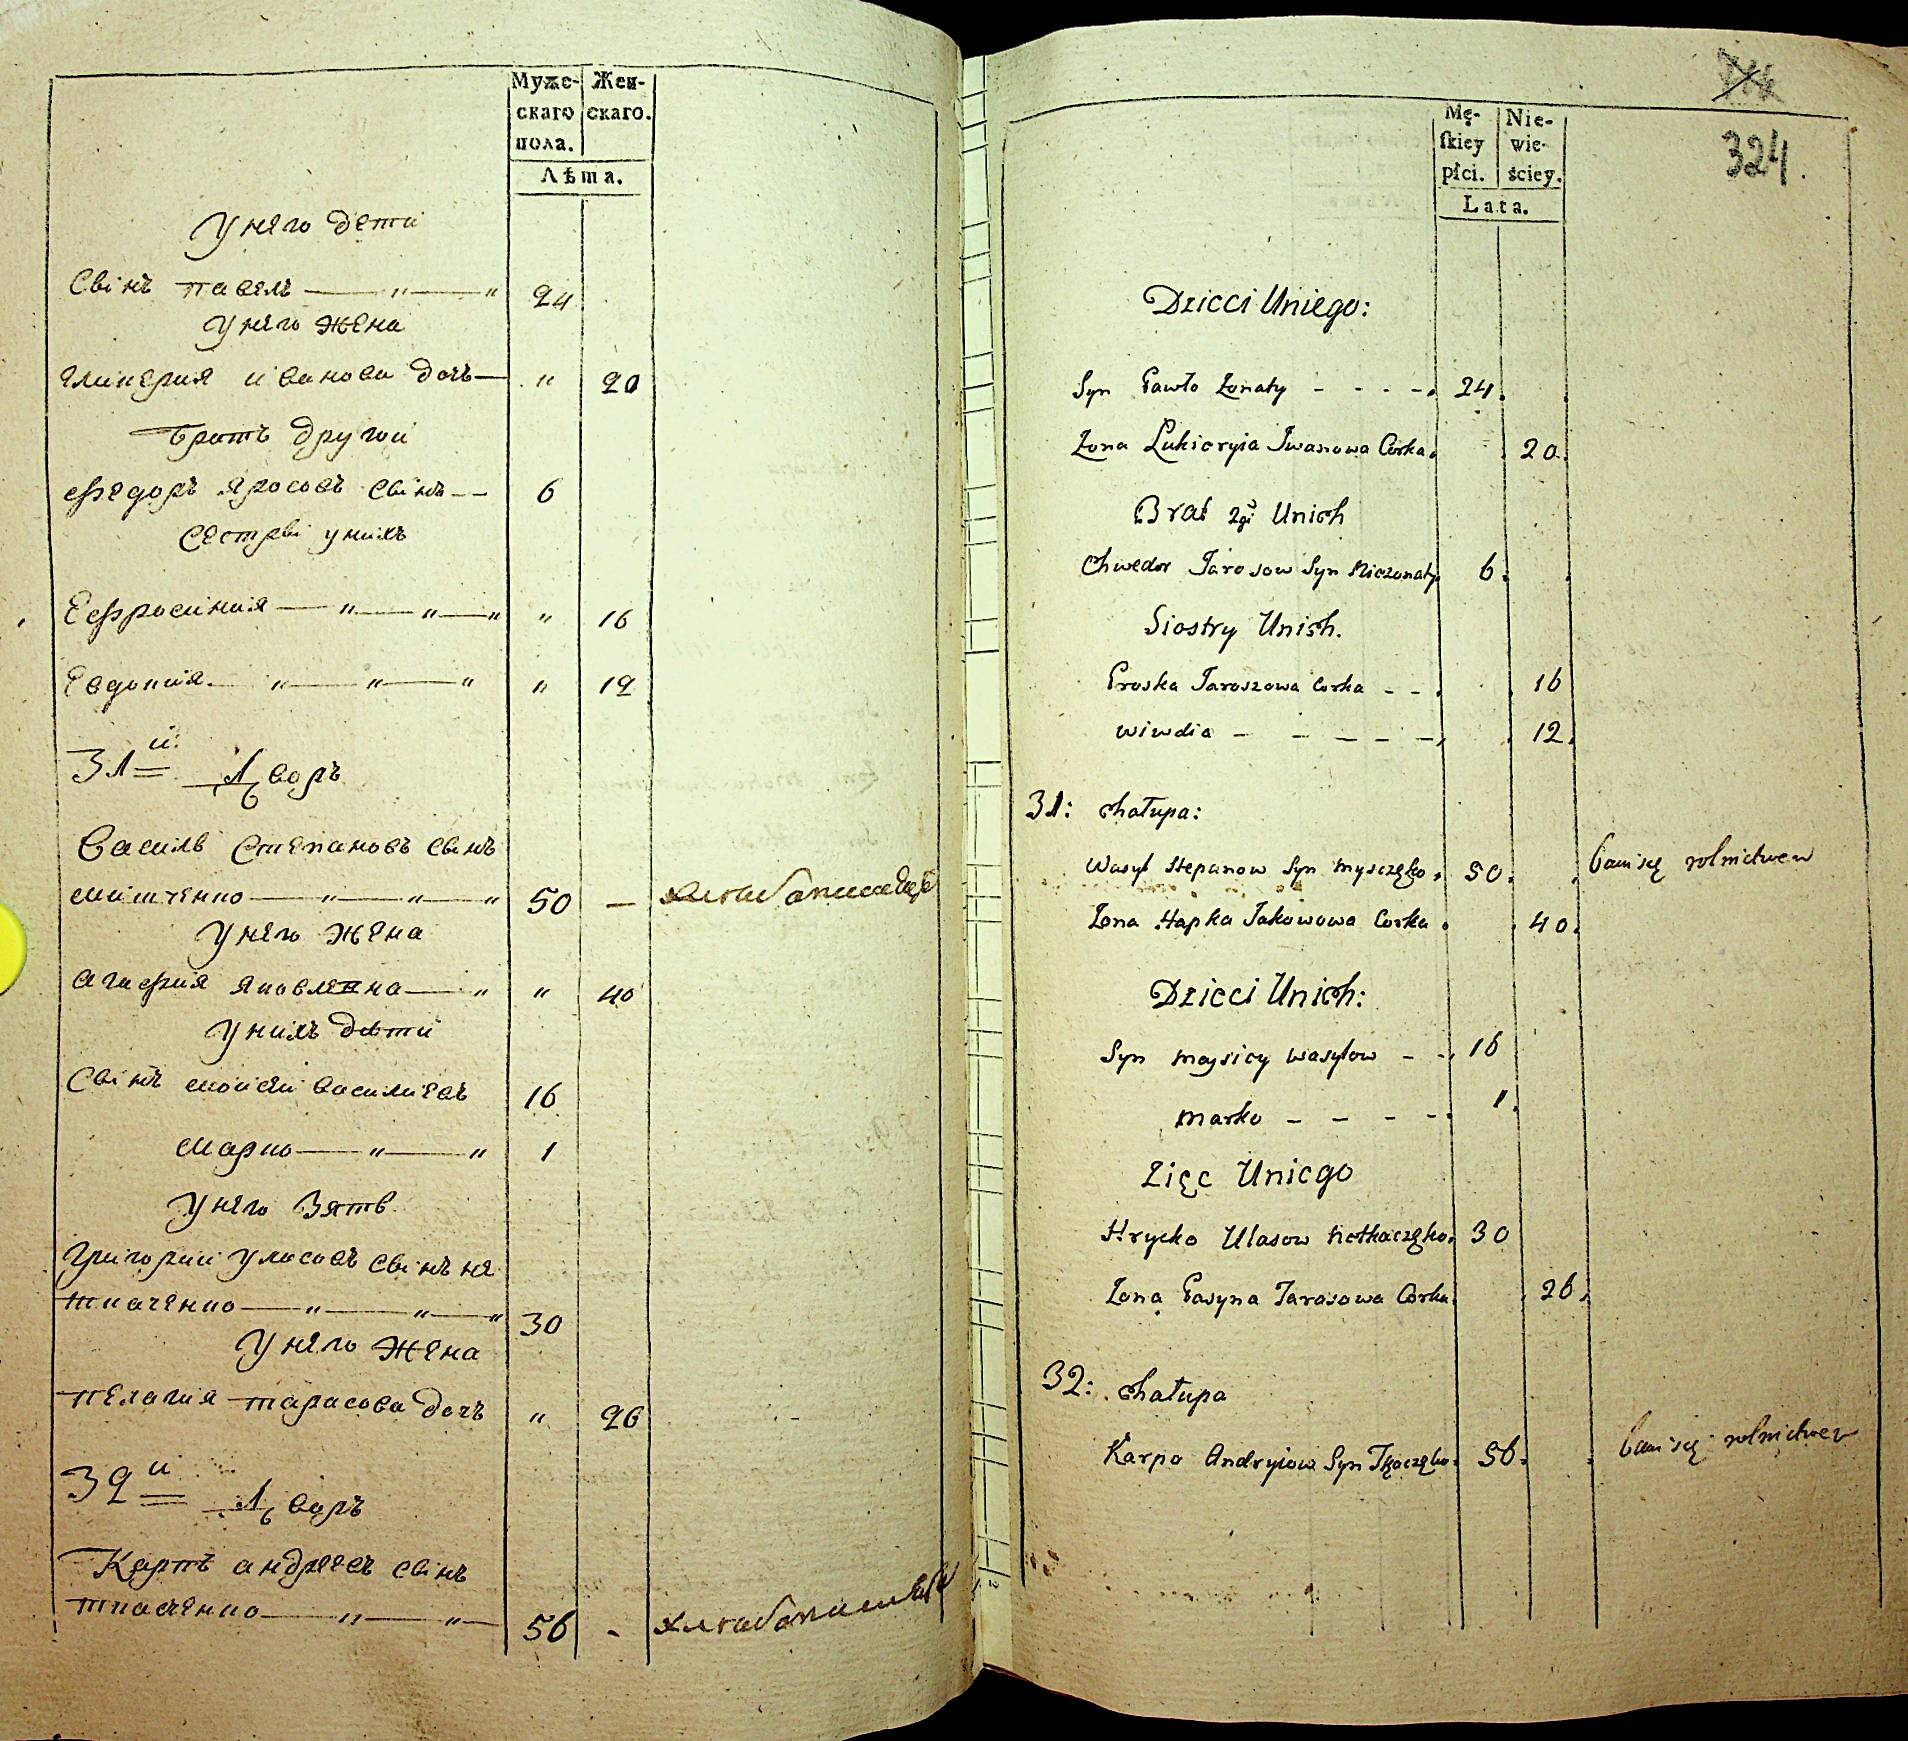 Муже-
скаго
пола.
Жен-
скаго.
Лѣта.
У него дети
Сынъ павелъ 24
У него жена
гликерия иванова дочь " 20
братъ другой
Федоръ Яросовъ сынъ 6
Сестры у нихъ
Ефросиния " 16
Евдокия " 12
31й Дворъ
Василь Степановъ сынъ
мищенко 50 —
У него жена
агафия яковлевна " 40
У нихъ дѣти
Сынъ мойсей василиевъ 16
марко 1
У него Зять
Григорий Уласовъ сынъ не
ткаченко 30
У него жена
пелагия тарасова дочъ " 26
32й Дворъ
Карпъ андреевъ сынъ
ткаченко 56 -
324.
Mę-
skiey
płci.
Nie-
wie-
ściey.
Lata.
Dzieci Uniego:
Syn Pawło Żonaty 24.
Żona Lukieryia Iwanowa Corka 20.
Brat 2gi Unich
Chwedor Jarosow Syn Nieżonaty 6.
Siostry Unich.
Proska Jaroszowa Corka 16
wiwdia 12.
31: Chałupa:
Wasyl Stepanow Syn Myszczęko 50. bawi się rolnictwem
Żona Hapka Jakowowa Corka 40.
Dzieci Unich:
Syn Moysiey Wasylow 16
Marko 1.
Zięc Uniego
Hrycko Ulasow Netkaczęko 30
Żona Pasyna Tarasowa Corka 26.
32: Chałupa
Karpo Andryiow Syn Tkaczęko 56. bawi się rolnictwem